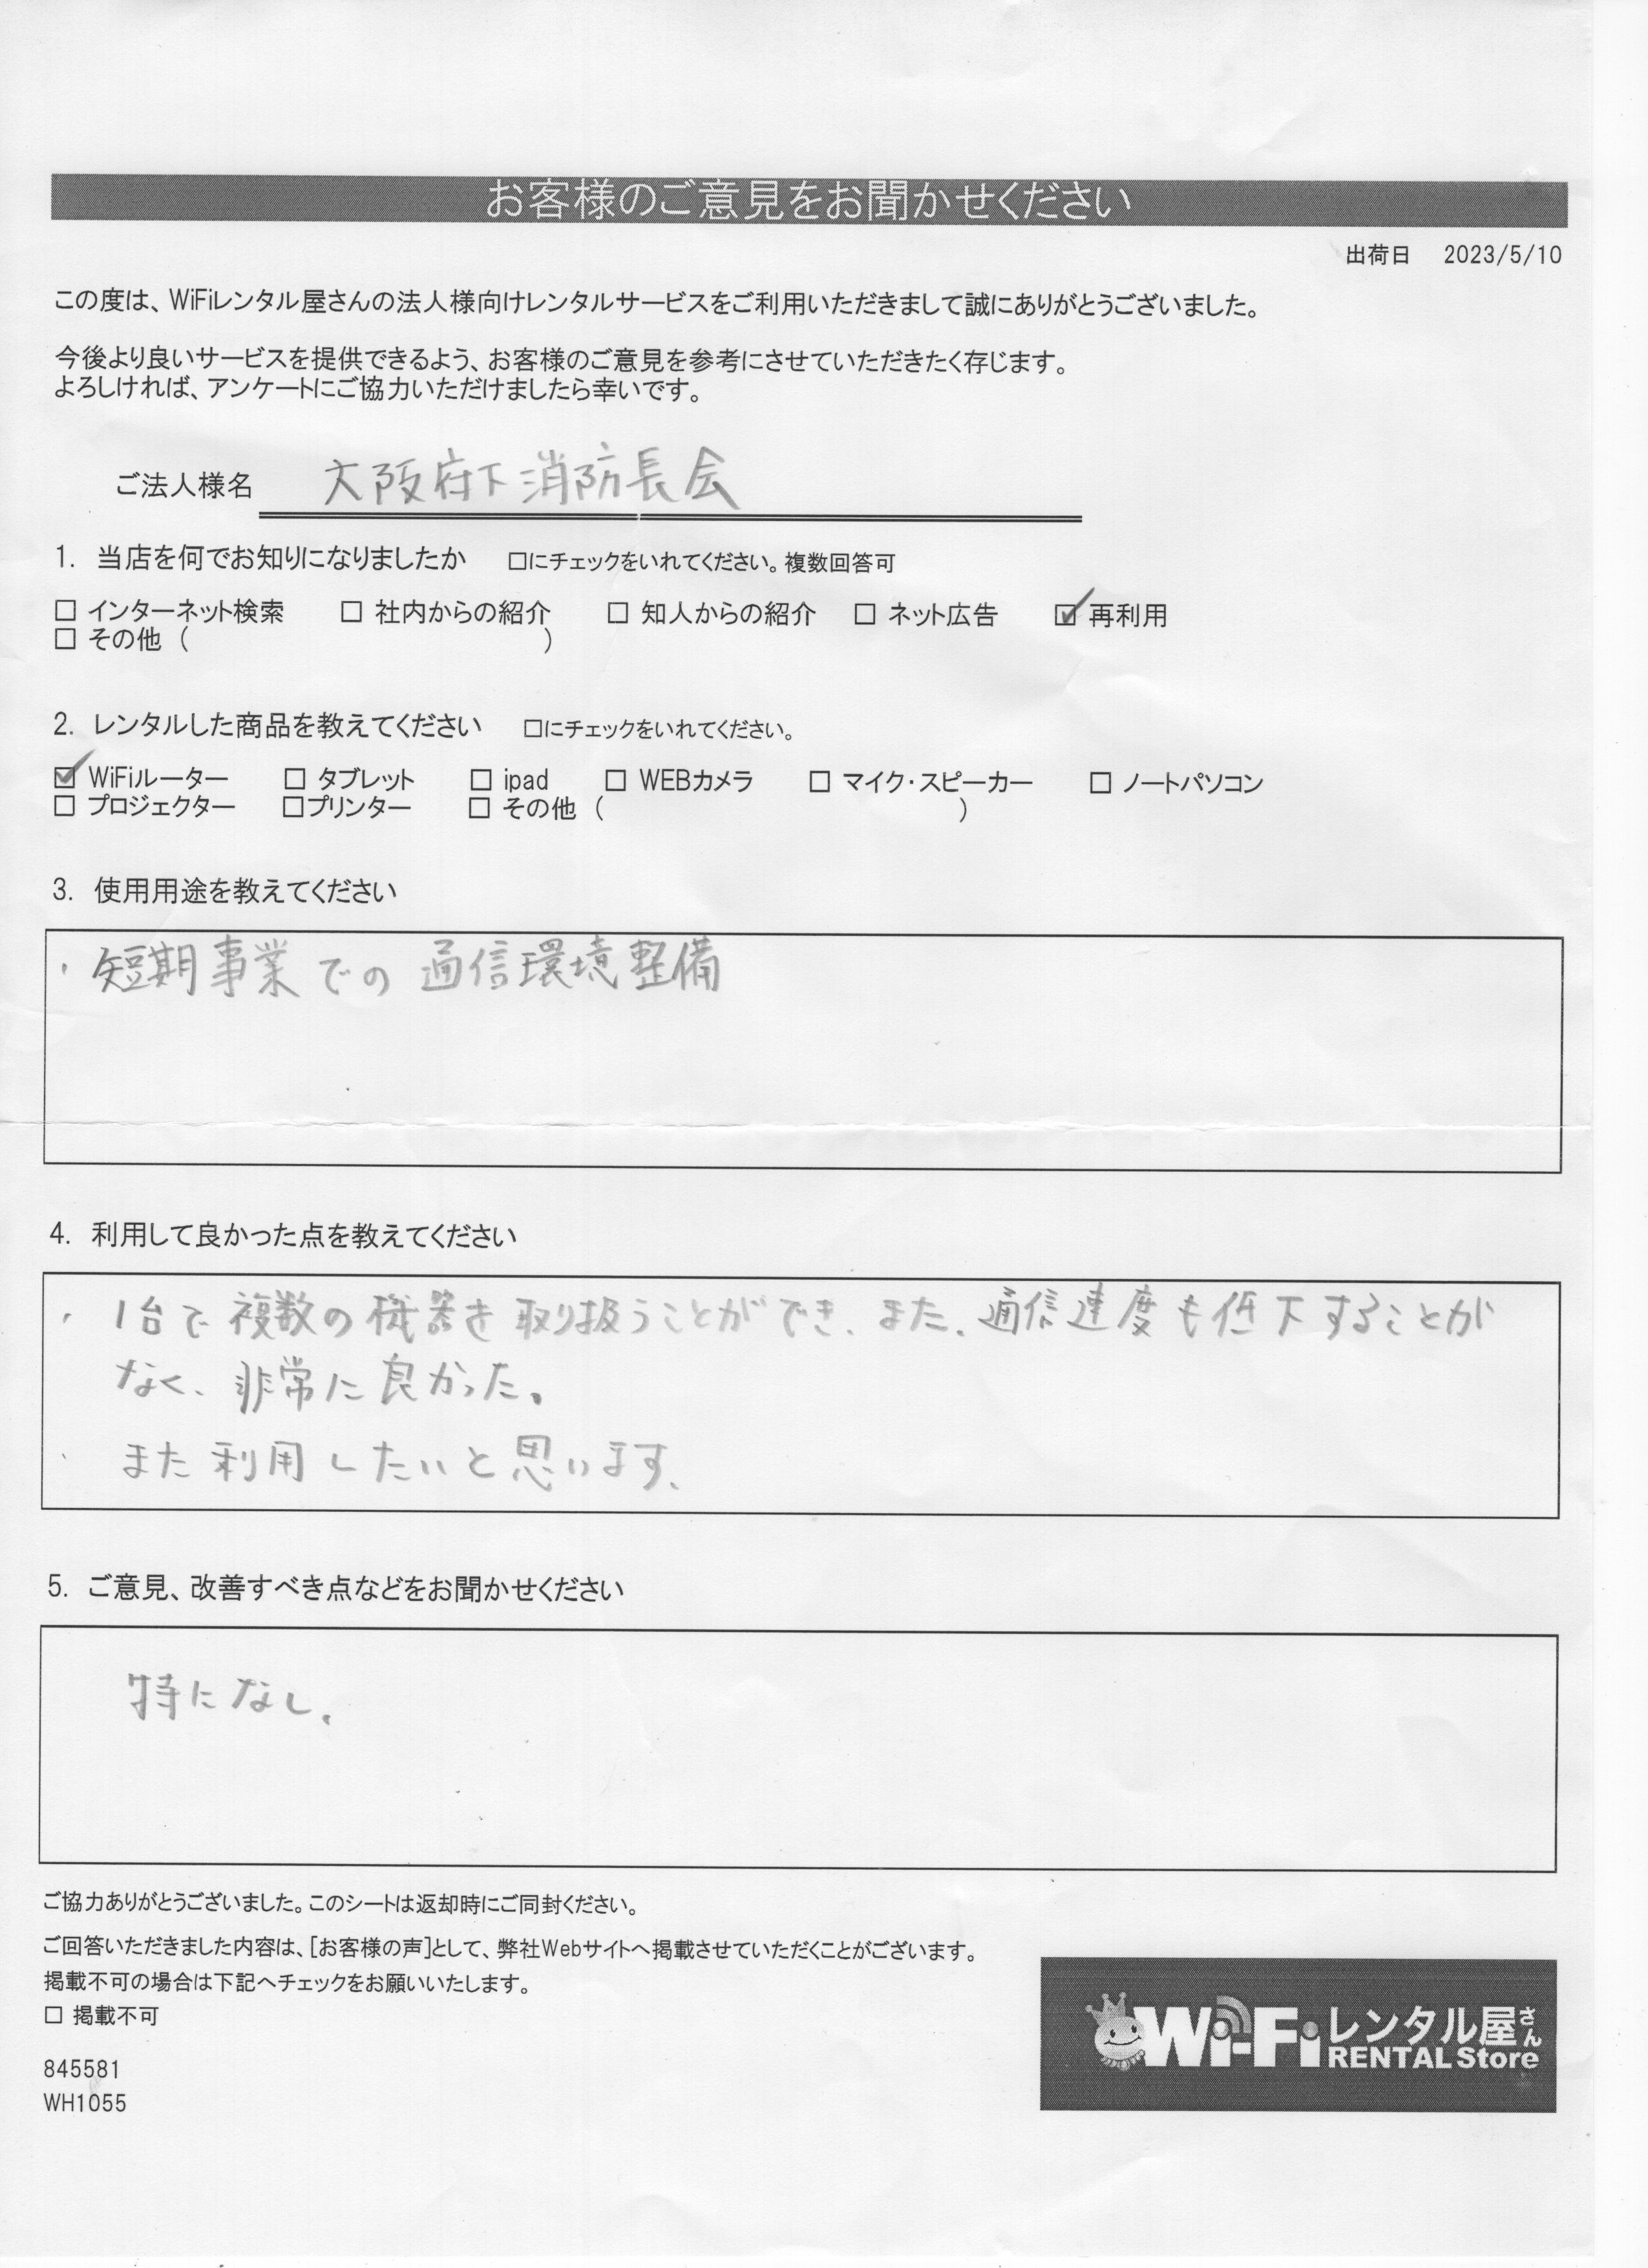 お客様のご意見をお聞かせください
出荷日 2023/5/10
この度は、WiFiレンタル屋さんの法人様向けレンタルサービスをご利用いただきまして誠にありがとうございました。
今後より良いサービスを提供できるよう、お客様のご意見を参考にさせていただきたく存じます。
よろしければ、アンケートにご協力いただけましたら幸いです。
ご法人様名 大阪府下消防長会
1. 当店を何でお知りになりましたか □にチェックをいれてください。複数回答可
□ インターネット検索 □ 社内からの紹介 □ 知人からの紹介 □ ネット広告 ☑ 再利用
□ その他 ( )
2. レンタルした商品を教えてください □にチェックをいれてください。
☑ WiFiルーター □ タブレット □ ipad □ WEBカメラ □ マイク・スピーカー □ ノートパソコン
□ プロジェクター □プリンター □ その他 ( )
3. 使用用途を教えてください
・短期事業での通信環境整備
4. 利用して良かった点を教えてください
・1台で複数の機器を取り扱うことができ、また、通信速度も低下することが
なく、非常に良かった。
・また利用したいと思います。
5. ご意見、改善すべき点などをお聞かせください
特になし。
ご協力ありがとうございました。このシートは返却時にご同封ください。
ご回答いただきました内容は、[お客様の声]として、弊社Webサイトへ掲載させていただくことがございます。
掲載不可の場合は下記へチェックをお願いいたします。
□ 掲載不可
845581
WH1055
Wi-Fiレンタル屋さん
RENTAL Store